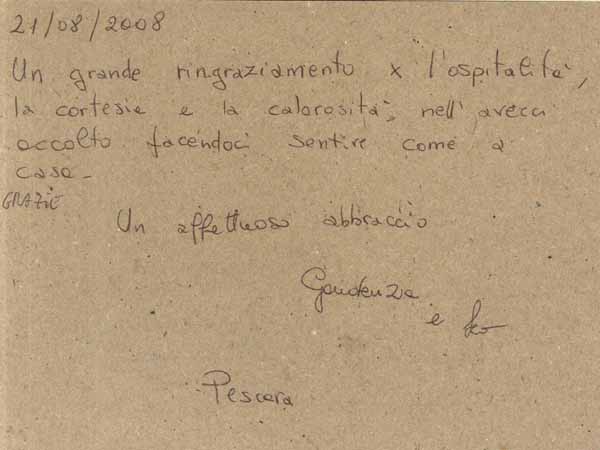 21/08/2008
Un grande ringraziamento x l'ospitalità,
la cortesia e la calorosità, nell'averci
accolto facendoci sentire come a
casa-
GRAZIE
Un affettuoso abbraccio
Gaudenzia
e
Pescara